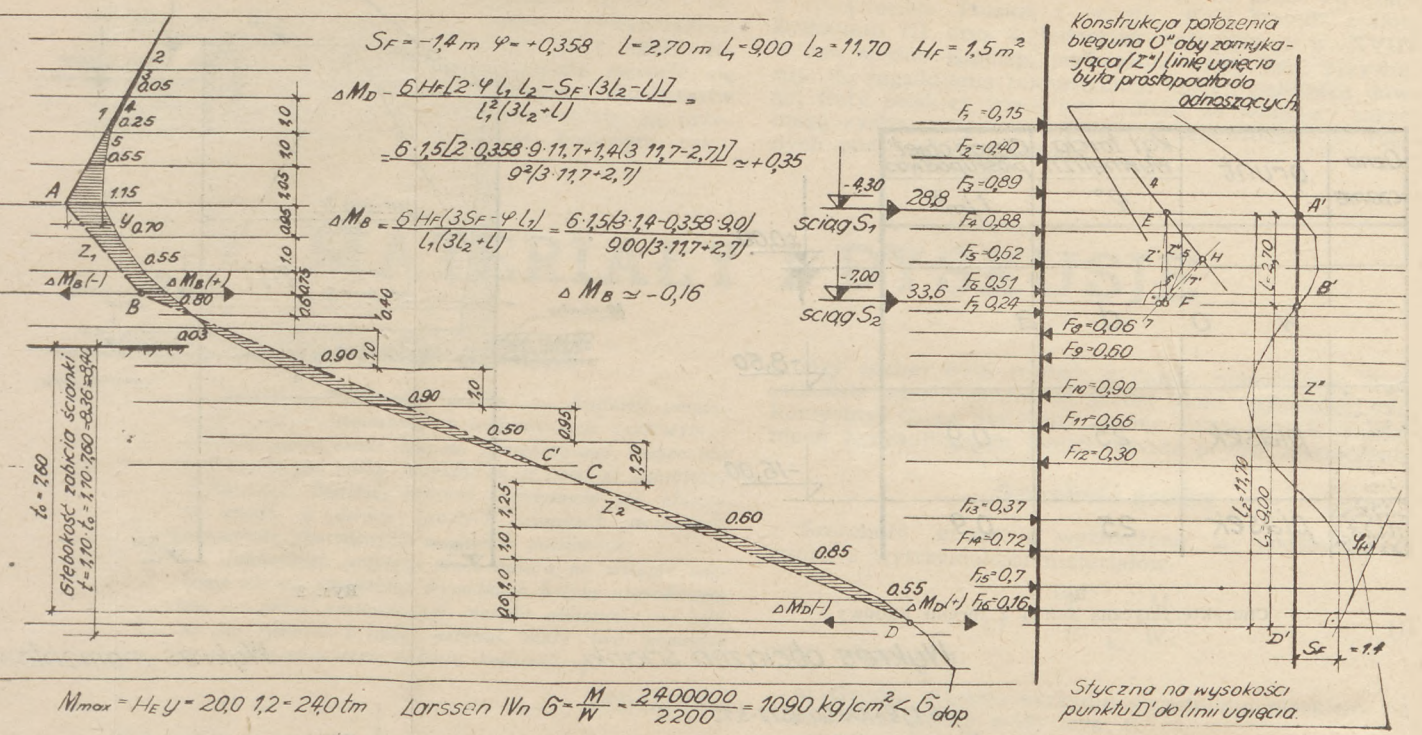 S_F = -1,4 m φ = +0,358 l = 2,70 m l₁ = 9,00 l₂ = 11.70 H_F = 1,5 m²
ΔM_D - 6 H_F [2·φ l₁ l₂ - S_F (3l₂ - l)] / l₁² (3l₂ + l) =
= 6·1,5 [2·0,358·9·11,7 + 1,4 (3·11,7 - 2,7)] / 9² (3·11,7 + 2,7) ≃ +0,35
ΔM_B = 6 H_F (3S_F - φ l₁) / l₁ (3l₂ + l) = 6·1,5 (3·1,4 - 0,358·9,0) / 9.00 (3·11,7 + 2,7)
ΔM_B ≃ -0,16
2
3
0.05
4
1
0.25
5
0.55
A
1.15
y
0.70
Z₁
0.55
ΔM_B(-)
ΔM_B(+)
B
0.80
0.03
1,0
1,0
1,05
0,95
1,0
0,75
0,6
0,40
1,0
0.90
0.90
1,0
0.50
0,95
C'
C
1,20
Z₂
1,25
1,0
1,0
0,6
0.60
0.85
0.55
ΔM_D(-)
ΔM_D(+)
D
t₀ = 7,60
Głębokość zabicia ścianki
t = 1,10·t₀ = 1,10·7,60 = 8.36 ≃ 8,40
-4,30
28,8
ściąg S₁
-7,00
33,6
ściąg S₂
F₁ = 0,15
F₂ = 0,40
F₃ = 0,89
F₄ 0,88
F₅ = 0,62
F₆ 0,51
F₇ 0,24
F₈ = 0,06
F₉ = 0,60
F₁₀ = 0,90
F₁₁ = 0,66
F₁₂ = 0,30
F₁₃ = 0,37
F₁₄ = 0.72
F₁₅ = 0,7
F₁₆ = 0,16
Konstrukcja położenia
bieguna O" aby zamyka-
-jąca (Z") linię ugięcia
była prostopadła do
odnoszących
4
E
Z'
Z"
5
H
6
7'
F
7
A'
l = 2,70
B'
Z"
l₂ = 11,70
l₁ = 9,00
φ(+)
D'
S_F = 1.4
Styczna na wysokości
punktu D' do linii ugięcia.
M max = H_E y = 20,0 1,2 = 24,0 tm Larssen IVn σ = M / W = 2400000 / 2200 = 1090 kg/cm² < σ dop